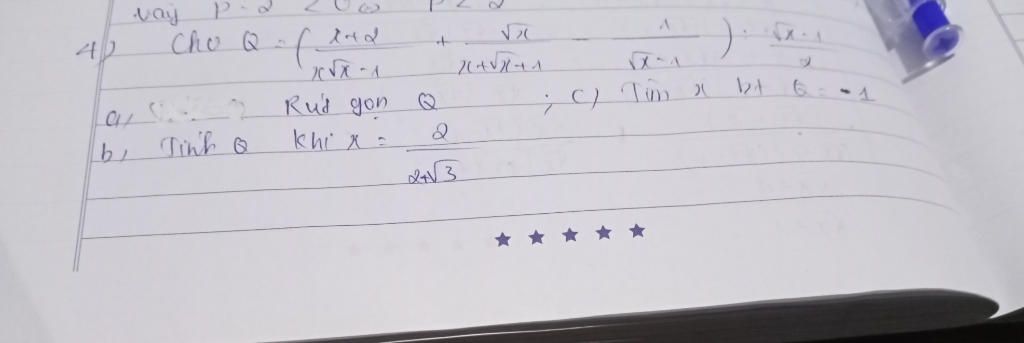 Vậy P - 2 < 0 P < 2
4) Cho Q = ( \frac{x+2}{x\sqrt{x}-1} + \frac{\sqrt{x}}{x+\sqrt{x}+1} - \frac{1}{\sqrt{x}-1} ) : \frac{\sqrt{x}-1}{2}
a, Rút gọn Q ; c) Tìm x bt Q = -1
b, Tính Q khi x = \frac{2}{2+\sqrt{3}}